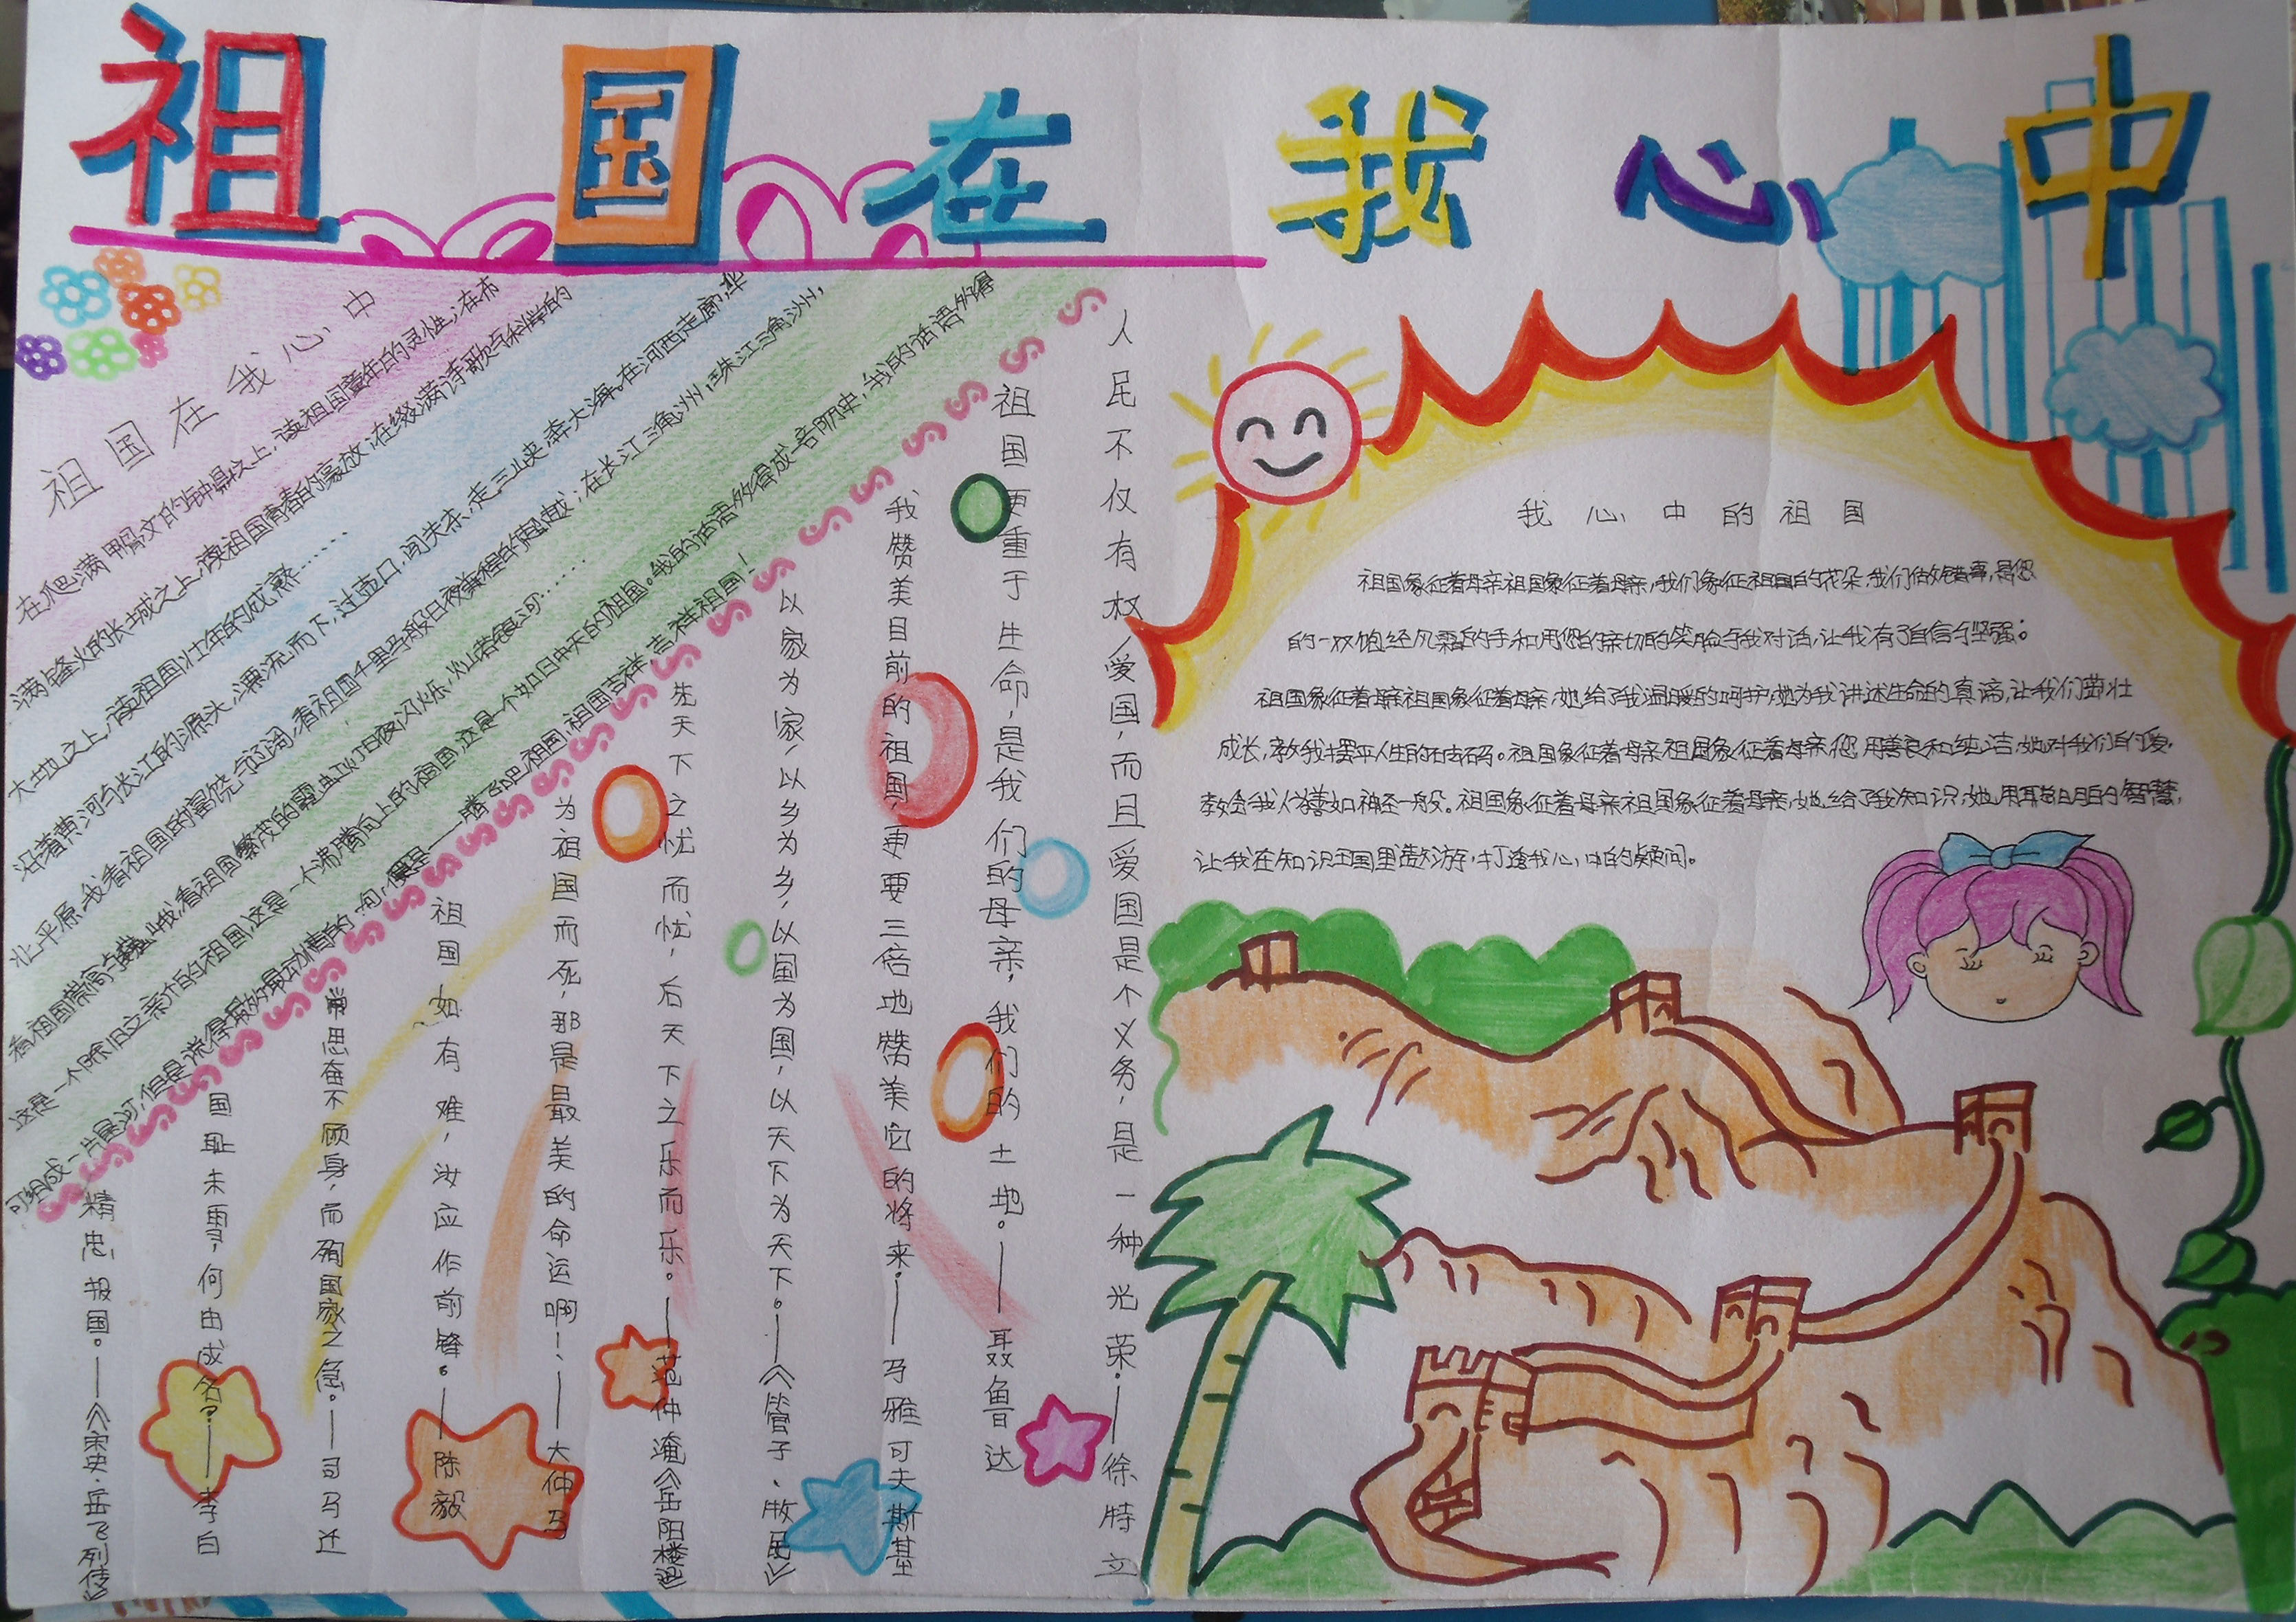 祖国在我心中
祖国在我心中
在爬满甲骨文的钟鼎之上,读祖国童年的灵性;在布
满烽火的长城之上,读祖国青春的豪放;在缀满诗歌与科学的
大地之上,读祖国壮年的成熟……
沿着黄河与长江的源头,漂流而下,过壶口,闯关东,走三峡,奔大海。在河西走廊,华
北平原,我看祖国的富饶与辽阔,看祖国千里马般日夜兼程的超越;在长江三角洲,珠江三角洲,
看祖国繁荣的霓虹灯日夜闪烁,灿若银河……
这是一个除旧立新的祖国,这是一个沸腾向上的祖国,这是一个如日中天的祖国。我的话语多得成吝历史,我的话语多得
可组成一片星河,但是说得最多的最动情的一句,便是——腾飞吧,祖国,祖国吉祥,吉祥祖国!
精忠报国。——《宋史·岳飞列传》
国耻未雪,何由成名?——李白
常思奋不顾身,而殉国家之急。——司马迁
祖国如有难,汝应作前锋。——陈毅
为祖国而死,那是最美的命运啊!——大仲马
先天下之忧而忧,后天下之乐而乐。——范仲淹《岳阳楼记》
以家为家,以乡为乡,以国为国,以天下为天下。——《管子·牧民》
我赞美目前的祖国,更要三倍地赞美它的将来。——马雅可夫斯基
祖国更重于生命,是我们的母亲,我们的土地。——聂鲁达
人民不仅有权爱国,而且爱国是个义务,是一种光荣。——徐特立
我心中的祖国
祖国象征着母亲祖国象征着母亲,我们象征祖国的花朵,我们做错事,是您
的一双饱经风霜的手和用您的亲切的笑脸与我对话,让我有了自信与坚强;
祖国象征着母亲祖国象征着母亲,她给了我温暖的呵护,她为我讲述生命的真谛,让我们茁壮
成长,教我摆平人生的砝码。祖国象征着母亲祖国象征着母亲,您用善良和纯洁,她对我们的爱,
教会我从善如神圣一般。祖国象征着母亲祖国象征着母亲,她给了我知识,她用聪明的智慧,
让我在知识王国里遨游,打造我心中的疑问。